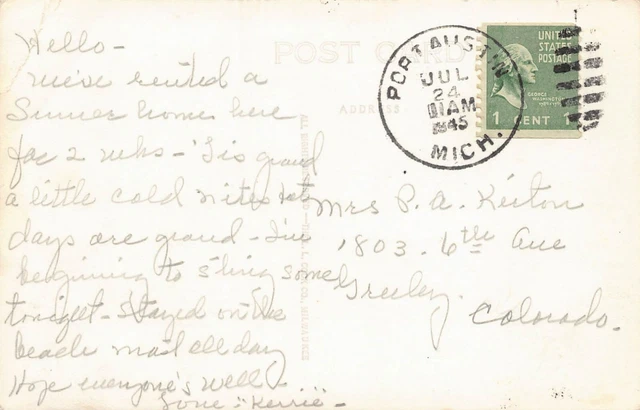 Hello -
We've rented a
Summer home here
for 2 wks - 'Tis grand
a little cold nites but
days are grand - I'm
beginning to sting some
tonight - Stayed on the
beach most all day
Hope everyone's well
Love "Kerrie" -
POST CARD
ADDRESS
PORT AUSTIN
JUL
24
11 AM
1945
MICH.
UNITED
STATES
POSTAGE
GEORGE
WASHINGTON
1 CENT 1
Mrs P. A. Keiton
1803. 6th Ave
Greeley.
Colorado.